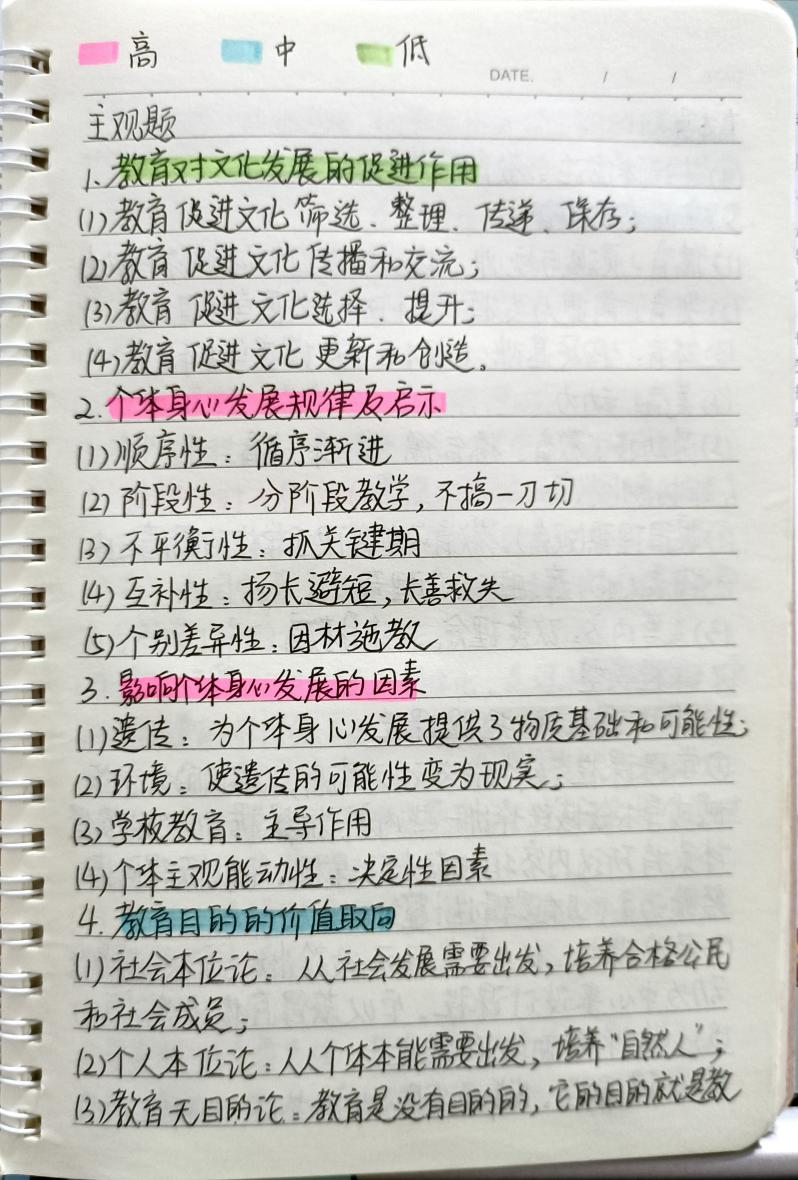 高 中 低
DATE. / /
主观题
1. 教育对文化发展的促进作用
(1) 教育促进文化筛选、整理、传递、保存;
(2) 教育促进文化传播和交流;
(3) 教育促进文化选择、提升;
(4) 教育促进文化更新和创造。
2. 个体身心发展规律及启示
(1) 顺序性：循序渐进
(2) 阶段性：分阶段教学，不搞一刀切
(3) 不平衡性：抓关键期
(4) 互补性：扬长避短，长善救失
(5) 个别差异性：因材施教
3. 影响个体身心发展的因素
(1) 遗传：为个体身心发展提供了物质基础和可能性;
(2) 环境：使遗传的可能性变为现实;
(3) 学校教育：主导作用
(4) 个体主观能动性：决定性因素
4. 教育目的的价值取向
(1) 社会本位论：从社会发展需要出发，培养合格公民
和社会成员;
(2) 个人本位论：从个体本能需要出发，培养“自然人”;
(3) 教育无目的论：教育是没有目的的，它的目的就是教